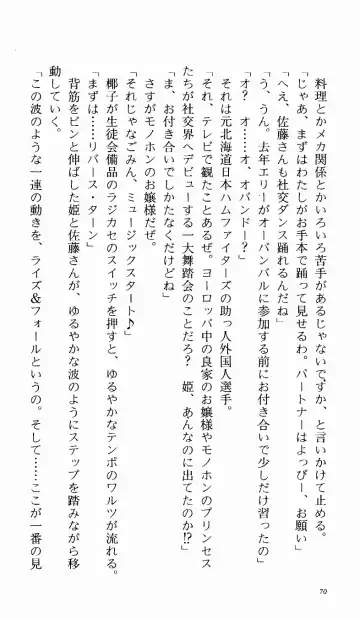 料理とかメカ関係とかいろいろ苦手があるじゃないですか、と言いかけて止める。
「じゃあ、まずはわたしがお手本で踊って見せるわ。パートナーはよっぴー、お願い」
「へえ、佐藤さんも社交ダンス踊れるんだね」
「う、うん。去年エリーがオーパンバルに参加する前にお付き合いで少しだけ習ったの」
「オ？　オ……オ、オバンドー？」
それは元北海道日本ハムファイターズの助っ人外国人選手。
「それ、テレビで観たことあるぜ。ヨーロッパ中の良家のお嬢様やモノホンのプリンセス
たちが社交界へデビューする一大舞踏会のことだろ？　姫、あんなのに出てたのか!?
「ま、お付き合いでしかたなくだけどね」
さすがモノホンのお嬢様だぜ。
「それじゃなごみん、ミュージックスタート♪」
椰子が生徒会備品のラジカセのスイッチを押すと、ゆるやかなテンポのワルツが流れる。
「まずは……リバース・ターン」
背筋をピンと伸ばした姫と佐藤さんが、ゆるやかな波のようにステップを踏みながら移
動していく。
「この波のような一連の動きを、ライズ＆フォールというの。そして……ここが一番の見
70